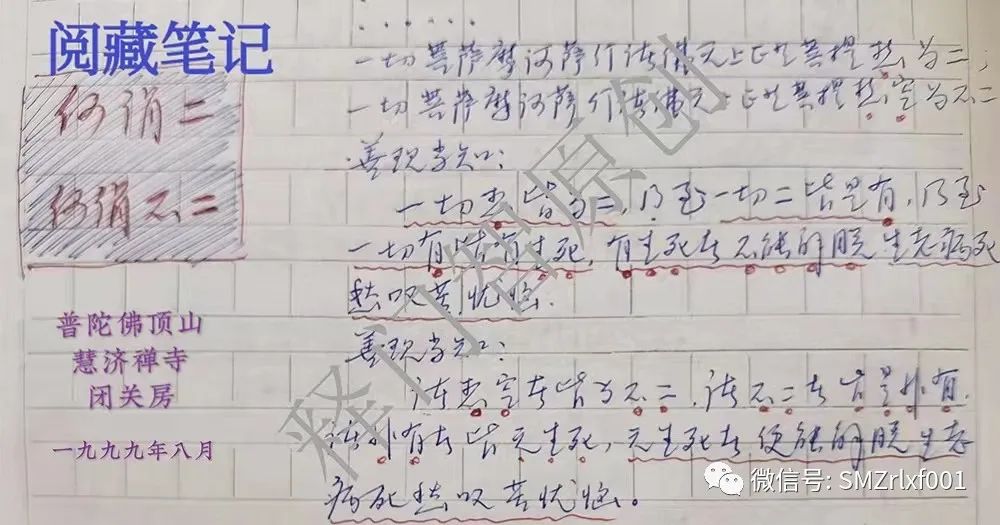 阅藏笔记
何谓二
何谓不二
普陀佛顶山
慧济禅寺
闭关房
一九九九年八月
......
一切菩萨摩诃萨行诸佛无上正等菩提想为二;
一切菩萨摩诃萨行诸佛无上正等菩提想空为不二
善现当知:
一切想皆为二,乃至一切二皆是有,乃至
一切有皆有生死,有生死者不能解脱生老病死
愁叹苦忧恼.
善现当知:
诸想空者皆为不二,诸不二者皆是非有,
诸非有者皆无生死,无生死者便能解脱生老
病死愁叹苦忧恼。
释门智原创
微信号: SMZrlxf001